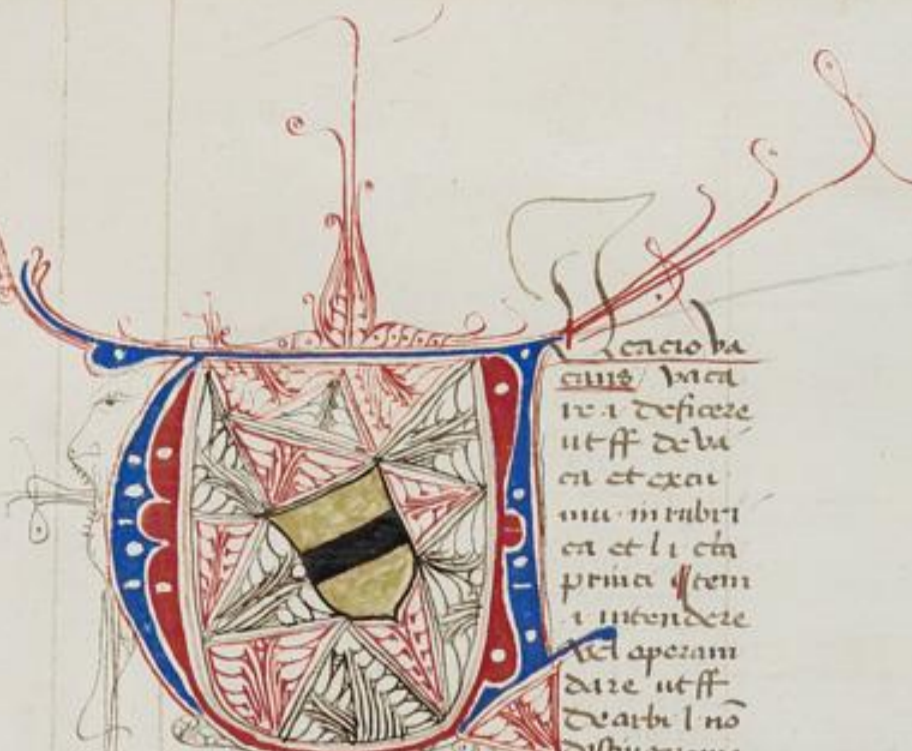 cacio va
cans vaca
re i deficere
ut ff de va
ca et excu
mu. in rubri
ca et l i cta
prima ¶ Item
i intendere
vel operam
dare ut ff
de arbi l nō